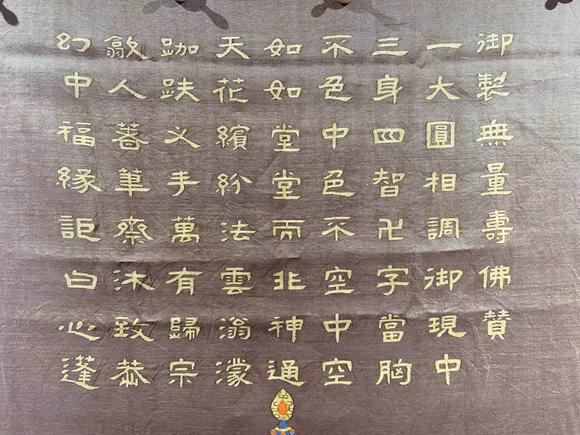 御製無量壽佛贊
一大圓相調御現中
三身四智卍字當胸
不色中色不空中空
如如堂堂而非神通
天花繽紛法雲滃濛
跏趺叉手萬有歸宗
歙人善筆齋沐致恭
幻中福緣詎白心蓬